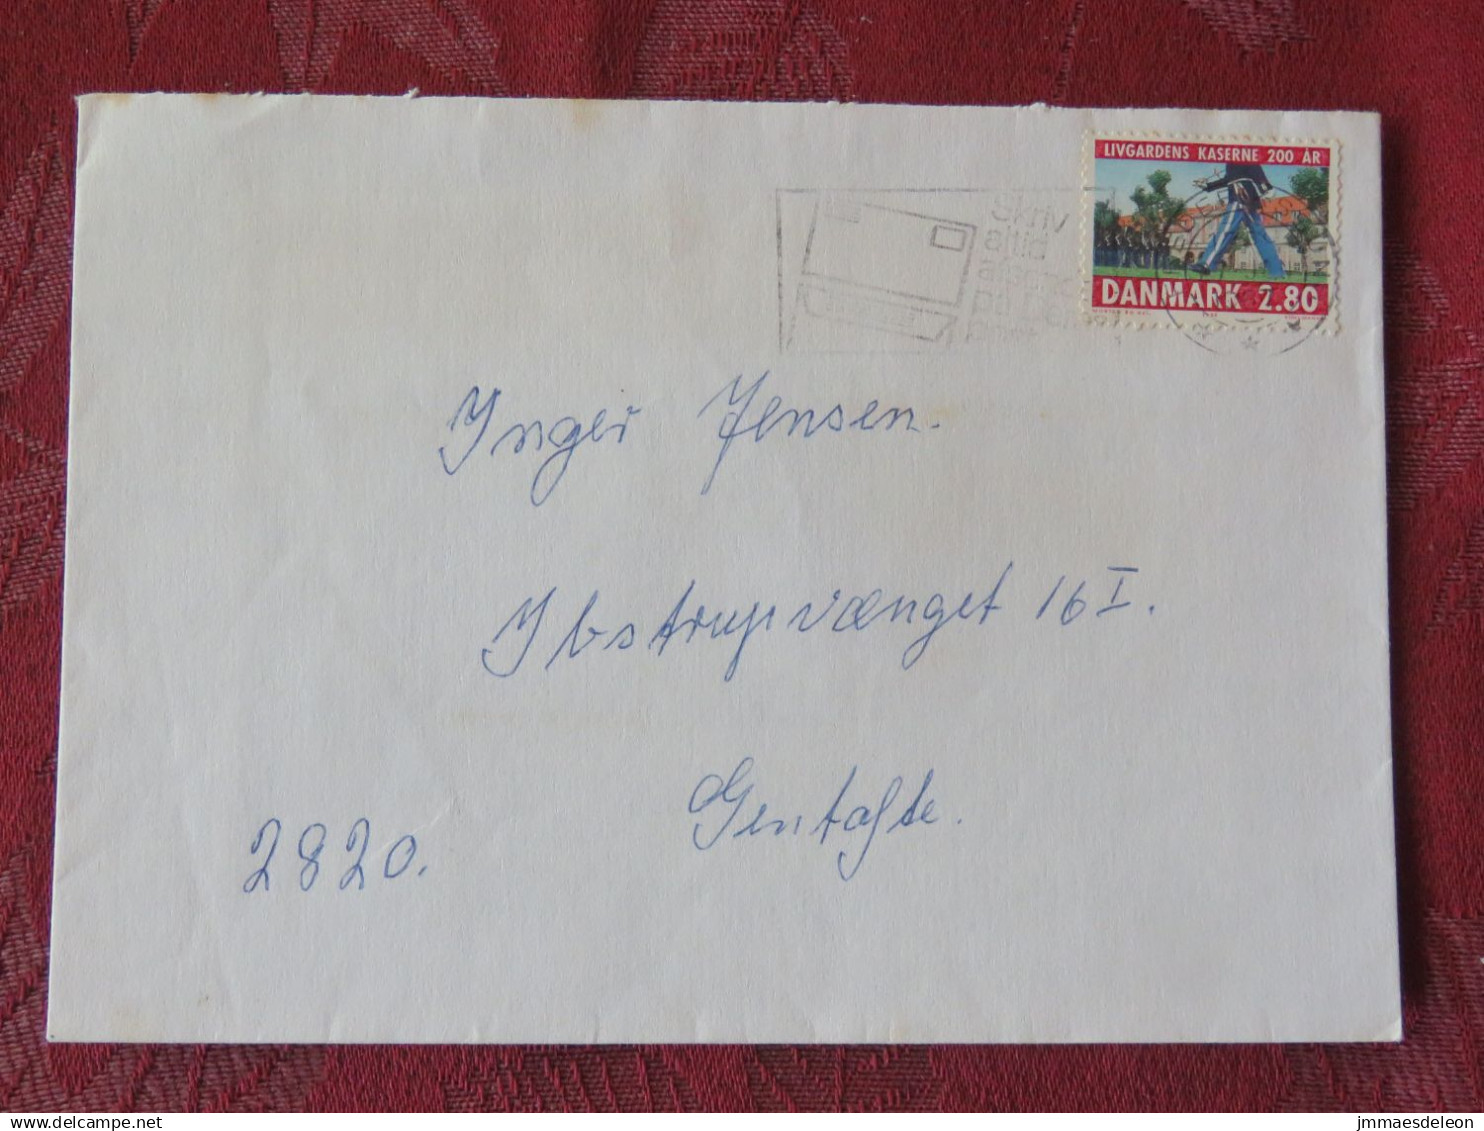 LIVGARDENS KASERNE 200 ÅR
DANMARK 2.80
Skriv
altid
på
Inger Jensen.
Ibstrupvænget 16 I.
Gentofte.
2820.
delcampe.net
jmmaesdeleon